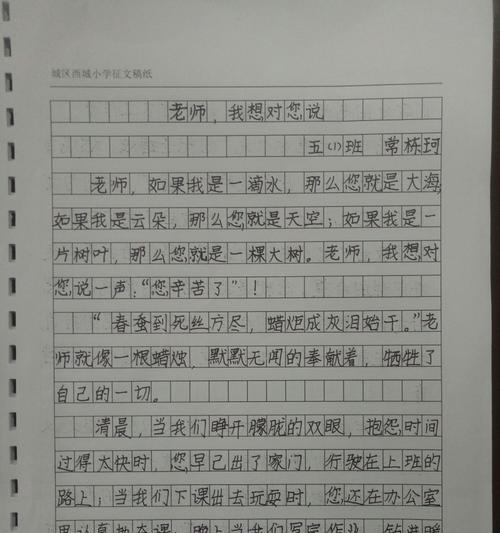 城区西城小学征文稿纸
老师，我想对您说
五(1)班 常栋珂
老师，如果我是一滴水，那么您就是大海，
如果我是云朵，那么您就是天空；如果我是一
片树叶，那么您就是一棵大树。老师，我想对
您说一声：“您辛苦了”！
“春蚕到死丝方尽，蜡炬成灰泪始干。”老
师就像一根蜡烛，默默无闻的奉献着，牺牲了
自己的一切。
清晨，当我们睁开朦胧的双眼，抱怨时间
过得太快时，您早已出了家门，行驶在上班的
路上；当我们下课出去玩耍时，您还在办公室